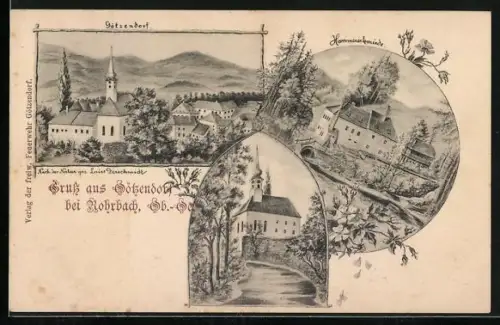 Götzendorf.
Hammerschmiede
Verlag der freiw. Feuerwehr Götzendorf.
Nach der Natur gez. Luise
Gruß aus Götzendorf
bei Rohrbach, Ob.-